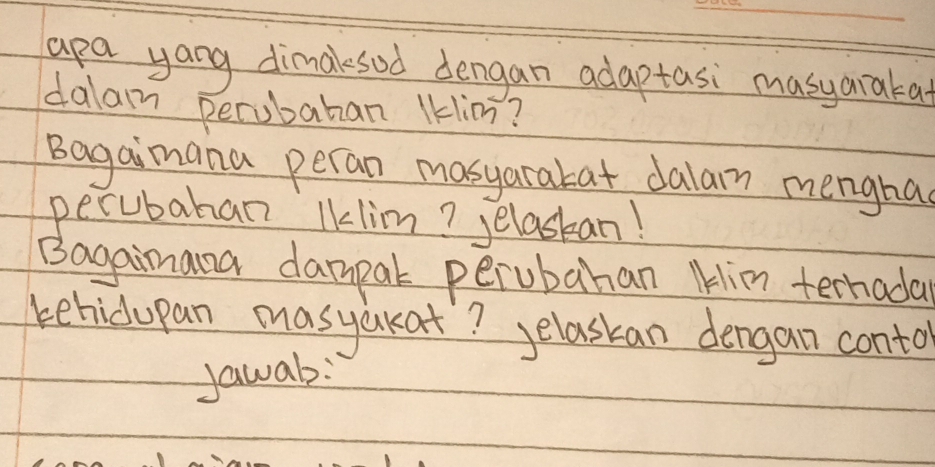 apa yang dimaksud dengan adaptasi masyarakat
dalam perubahan iklim?
Bagaimana peran masyarakat dalam menghad
perubahan iklim? jelaskan!
Bagaimana dampak perubahan iklim terhadap
kehidupan masyakat? jelaskan dengan contoh
jawab: